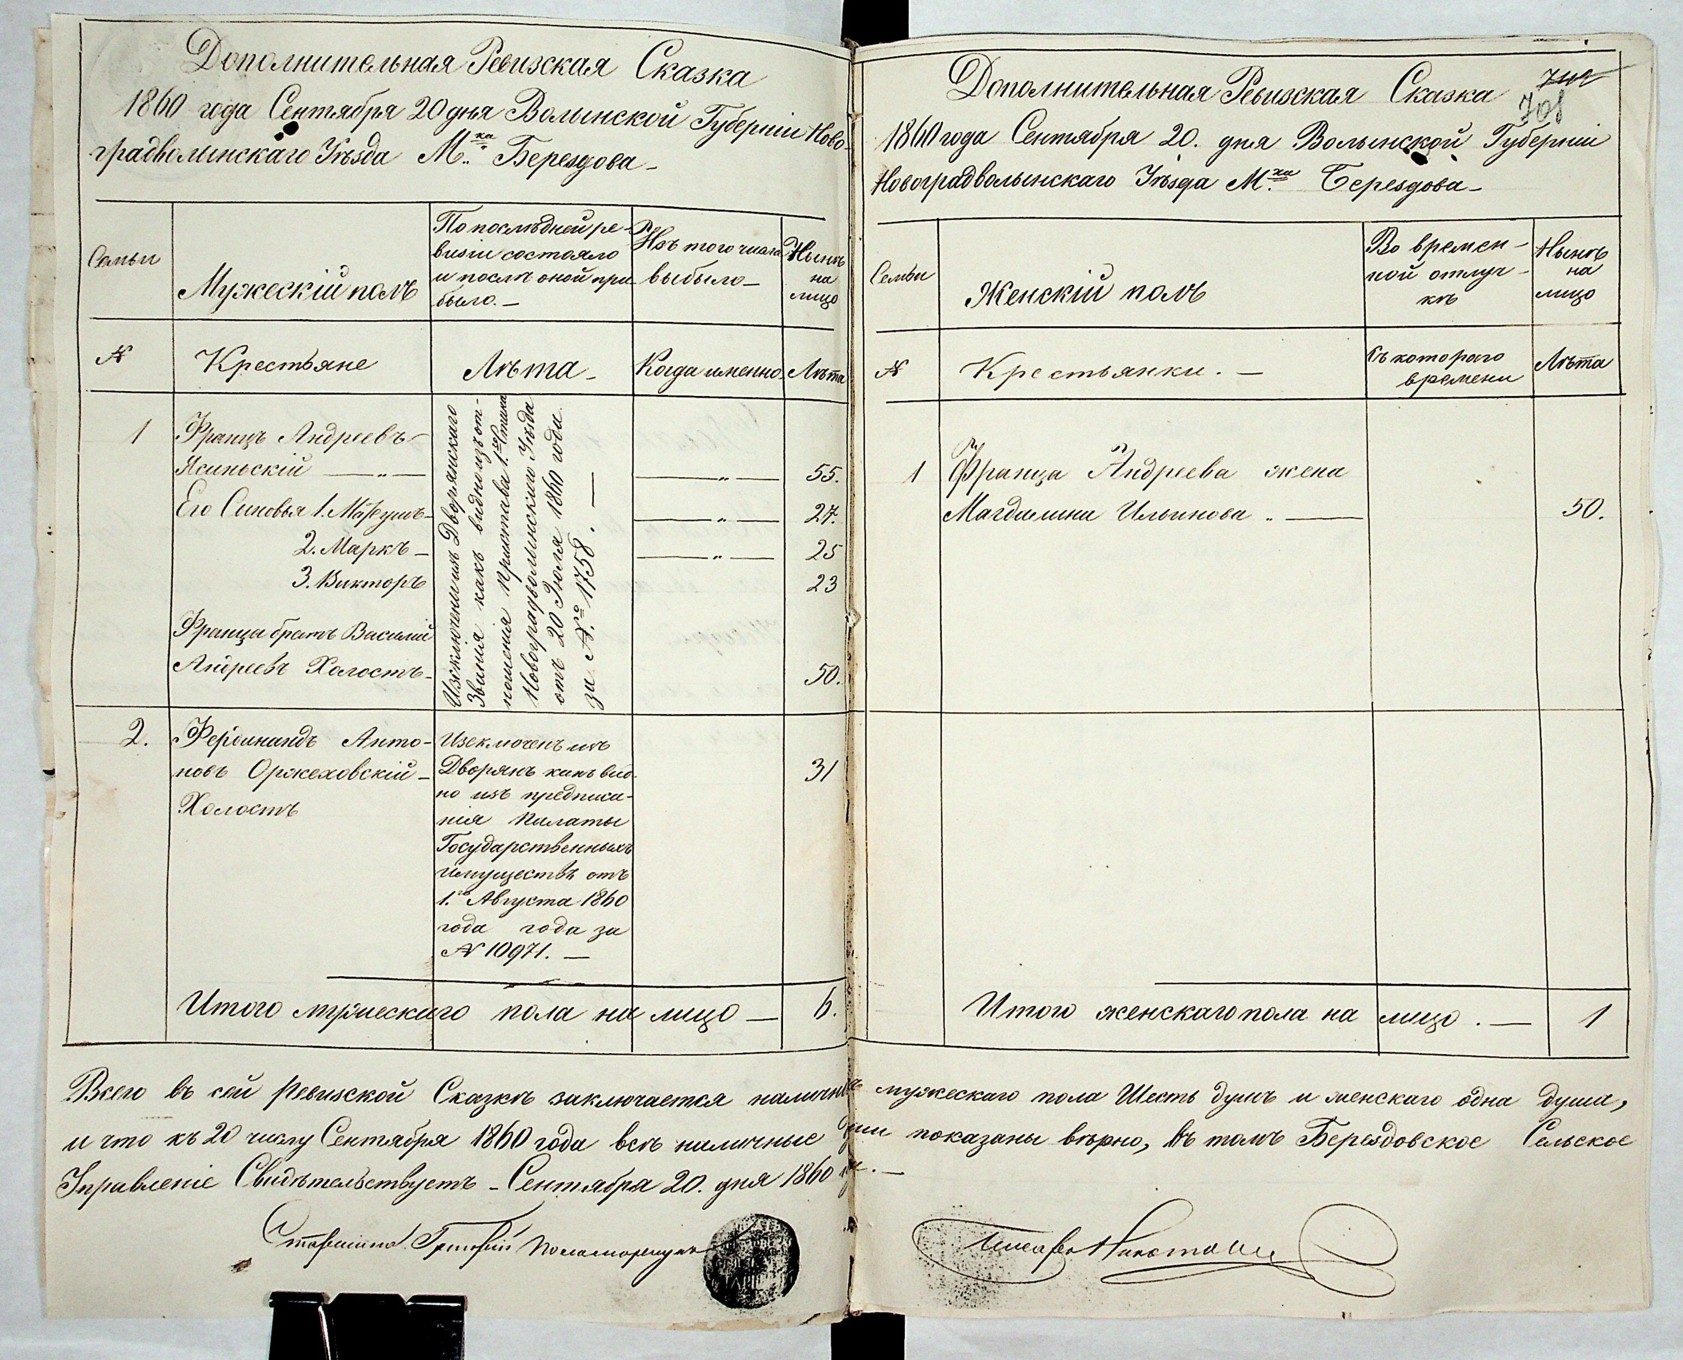 Дополнительная Ревизская Сказка
1860 года Сентября 20 дня Волынской Губерніи Ново
градволынскаго Уѣзда М.ка Берездова
Семьи
Мужескій полъ
По послѣдней ре-
визіи состояло
и послѣ оной при
было.
Изъ того числа
выбыло
Нынѣ
на
лицо
№
Крестьяне
Лѣта
Когда именно
Лѣта
1
Францъ Андреевъ
Ясиньскій — „ —
— „ — 55.
Его Сыновья 1. Матеушъ
— „ — 27.
2. Маркъ
— „ — 25
3. Викторъ
23
Франца братъ Василій
Андреевъ Холостъ
50.
Изключены изъ Дворянскаго
Званія какъ видно изъ от-
ношенія Пристава 1.го Стана
Новоградволынскаго Уѣзда
отъ 20 Іюля 1860 года
за №. 1758.
2.
Фердинандъ Анто-
новъ Оржеховскій
Холостъ
Изключенъ изъ
Дворянъ какъ вид-
но изъ предписа-
нія Палаты
Государственныхъ
имуществъ отъ
1.го Августа 1860
года года за
№ 10971.
31
Итого мужескаго пола на лицо — 6.
Дополнительная Ревизская Сказка
708
1860 года Сентября 20. дня Волынской Губерніи
Новоградволынскаго Уѣзда М.ка Берездова
Семьи
Женскій полъ
Во времен-
ной отлуч-
кѣ
Нынѣ
на
лицо
№
Крестьянки.
Съ котораго
времени
Лѣта
1
Франца Андреева жена
Магдалина Ильинова
50.
Итого женскаго пола на лицо. — 1
Всего въ сей Ревизской Сказкѣ заключается наличныхъ мужескаго пола Шесть душъ и женскаго одна душа,
и что къ 20 числу Сентября 1860 года всѣ наличные души показаны вѣрно, въ томъ Берездовское Сельское
Управленіе Свидѣтельствуетъ - Сентября 20. дня 1860 г.
Старшина Григорій
Писарь